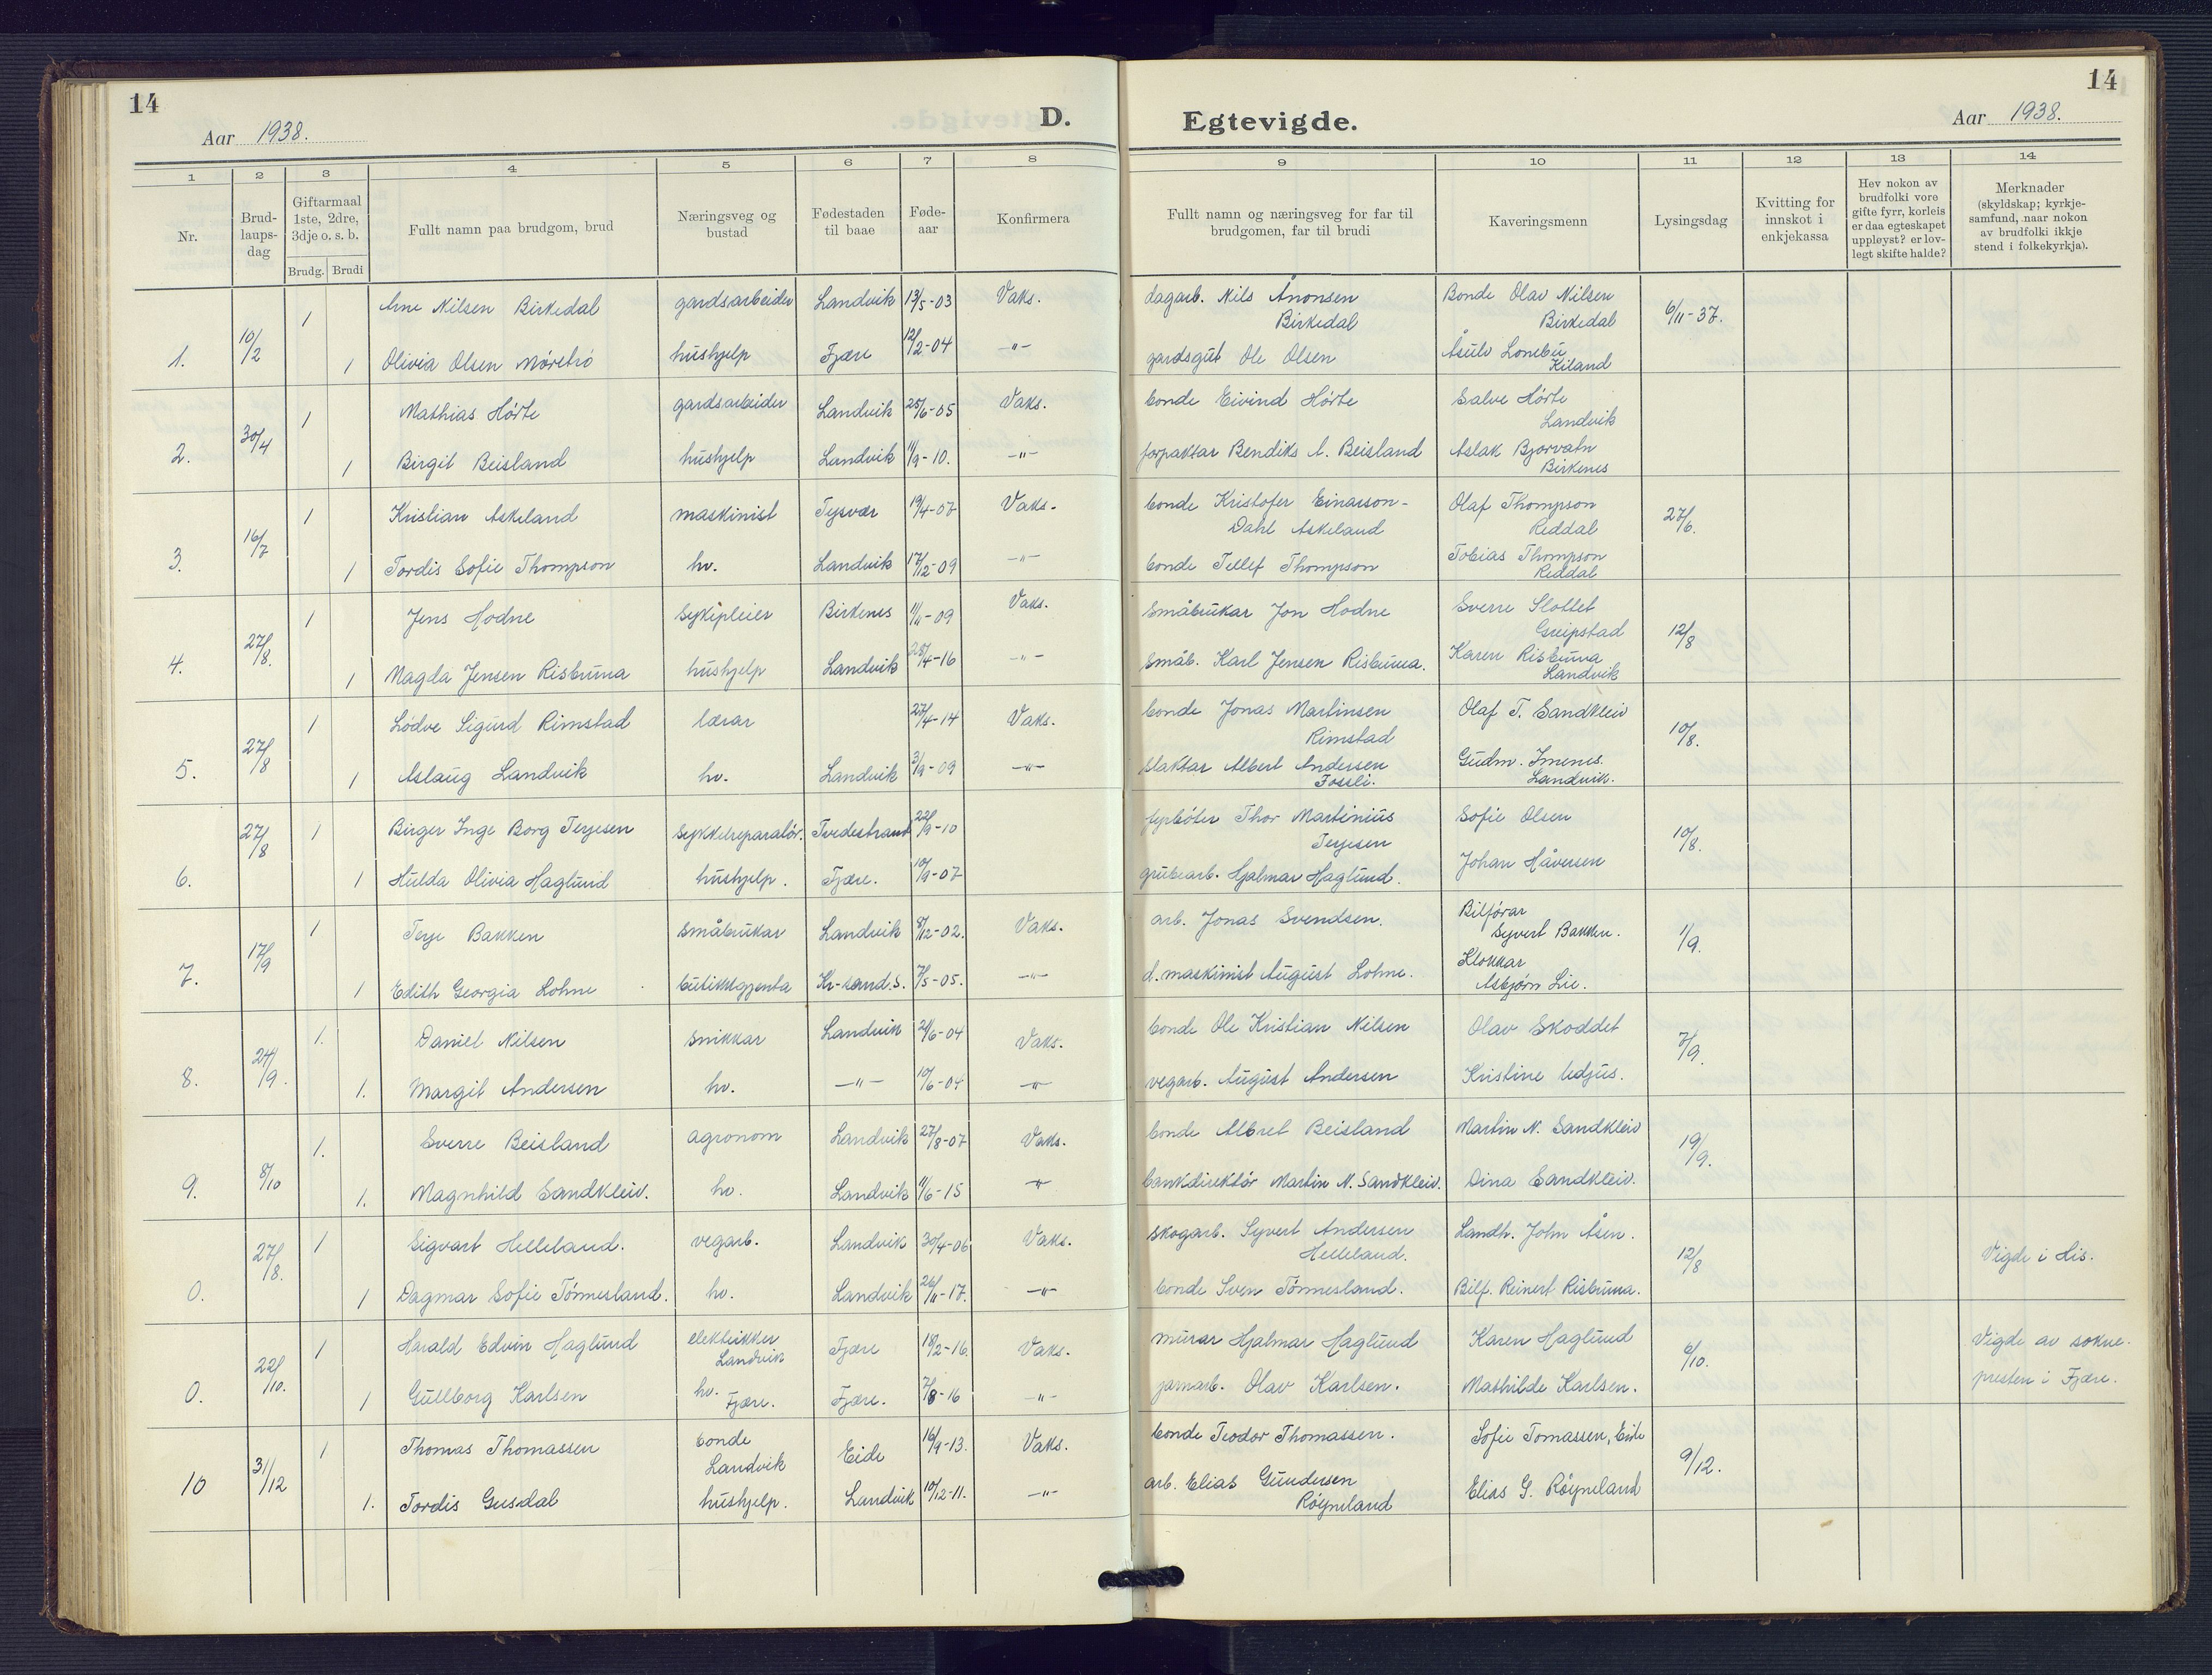 14
Aar 1938.
D.
Egtevigde.
14
Aar 1938.
1 2 3 4 5 6 7 8 9 10 11 12 13 14
Nr.
Brud-
laups-
dag
Giftarmaal
1ste, 2dre,
3dje o. s. b.
Brudg. Brudi
Fullt namn paa brudgom, brud
Næringsveg og
bustad
Fødestaden
til baae
Føde-
aar
Konfirmera
Fullt namn og næringsveg for far til
brudgomen, far til brudi
Kaveringsmenn
Lysingsdag
Kvitting for
innskot i
enkjekassa
Hev nokon av
brudfolki vore
gifte fyrr, korleis
er daa egteskapet
uppløyst? er lov-
legt skifte halde?
Merknader
(skyldskap; kyrkje-
samfund, naar nokon
av brudfolki ikkje
stend i folkekyrkja).
1 Arne Nilsen Birkedal gardsarbeider Landvik 13/5-03 Vaks. dagarb. Nils Ånonsen Bonde Olav Nilsen
Birkedal Birkedal 6/11-37.
1. 10/2 1 Olivia Olsen Mørebrö hushjelp Fjære 12/2-04 -"- gardsgut Ole Olsen Åsulv
Kiland
1 Mathias Hörte gardsarbeider Landvik 25/6-05 Vaks. bonde Eivind Hörte Salve Hörte
Landvik
2. 30/4 1 Birgit Beisland hushjelp Landvik 11/9-10. -"- forpaktar Bendiks A. Beisland Aslak Bjorvatn
Birkenes
1 Kristian Askeland maskinist Tysvær 19/4-07 Vaks. bonde Kristofer Einarson- Olaf Thompson
Dahl Askeland Reddal 27/6.
3. 16/7 1 Tordis Sofie Thompson hv. Landvik 17/12-09 -"- bonde Tellef Thompson Tobias Thompson
Reddal
1 Jens Hodne sykepleier Birkenes 1/11-09 Vaks. Småbrukar Jon Hodne Sverre Slottet
Greipstad 12/8
4. 27/8. 1 Magda Jensen Risbruna hushjelp Landvik 28/4-16 -"- Småb. Karl Jensen Risbruna. Karen Risbruna
Landvik
1 Lødve Sigurd Rimstad lærar 27/4-14 Vaks. bonde Jonas Martinsen Olaf T. Sandkleiv
Rimstad 10/8.
5. 27/8 1 Aslaug Landvik hv. Landvik 3/9-09 -"- slaktar Albert Andersen Gudm. Imenes.
Fossli. Landvik.
27/8 1 Birger Inge Borg Terjesen Sykkelreparatör. Tvedestrand 22/9-10 fyrböter Thor Martinius Sofie Olsen
Terjesen 10/8.
6. 1 Hulda Olivia Haglund hushjelp. Fjære. 10/9-07 grubearb. Hjalmar Haglund. Johan Håversen
1 Terje Bakken Småbrukar Landvik 8/12-02. Vaks. arb. Jonas Svendsen. Bilförar
Syvert Bakken. 1/9.
7. 17/9 1 Edith Georgia Lohne butikkgjenta Kr-sand.S. 7/5-05. -"- d. maskinist August Lohne. Klokkar
Asbjörn Lie.
1. Daniel Nilsen snikkar Landvik 21/6-04 Vaks. bonde Ole Kristian Nilsen Olav Skoddet 7/9.
8. 24/9. 1. Margit Andersen hv. -"- 10/6-04 -"- vegarb. August Andersen Kristine Udjus.
1. Sverre Beisland agronom Landvik 27/8-07 Vaks. bonde Albret Beisland Martin N. Sandkleiv 19/9.
9. 8/10 1. Magnhild Sandkleiv. hv. Landvik 11/6-15 -"- bankdirektör Martin N. Sandkleiv. Dina Sandkleiv.
1 Sigvart Helleland. vegarb. Landvik 30/4-06 Vaks. Skogarb. Syvert Andersen Landh. John Åsen.
Helleland. 12/8 Vigde i His.
0. 27/8. 1 Dagmar Sofie Tönnesland. hv. Landvik 26/11-17. -"- bonde Sven Tönnesland. Bilf. Reinert Risbruna.
1 Harald Edvin Haglund elektrikker Fjære 18/2-16. Vaks. murar Hjalmar Haglund Karen Haglund 6/10. Vigde av sokne-
Landvik
0. 22/10. 1 Gullborg Karlsen hv. Fjære. Fjære. 7/8-16 -"- jarnarb. Olav Karlsen. Mathilde Karlsen. presten i Fjære.
1 Thomas Thomassen bonde Eide 16/9-13. Vaks. bonde Teodor Thomassen. Sofie Tomassen, Eide
Landvik 9/12.
10 31/12 1. Tordis Gusdal hushjelp. Landvik 10/12-11. -"- arb. Elias Gundersen Elias G. Röyneland
Röyneland